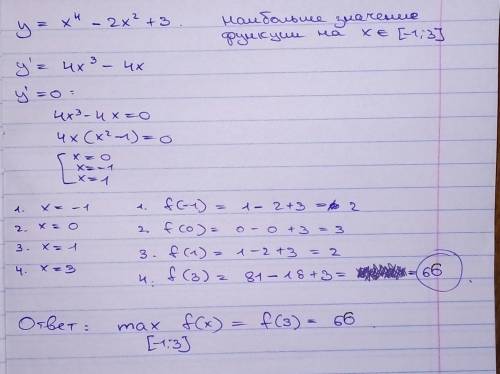 y = x⁴ - 2x² + 3. наибольшее значение
функции на x ∈ [-1;3]
y' = 4x³ - 4x
y' = 0:
4x³ - 4x = 0
4x(x² - 1) = 0
[ x = 0
x = -1
x = 1
1. x = -1 1. f(-1) = 1 - 2 + 3 = 2
2. x = 0 2. f(0) = 0 - 0 + 3 = 3
3. x = 1 3. f(1) = 1 - 2 + 3 = 2
4. x = 3 4. f(3) = 81 - 18 + 3 = = 66
Ответ: max f(x) = f(3) = 66.
[-1;3]